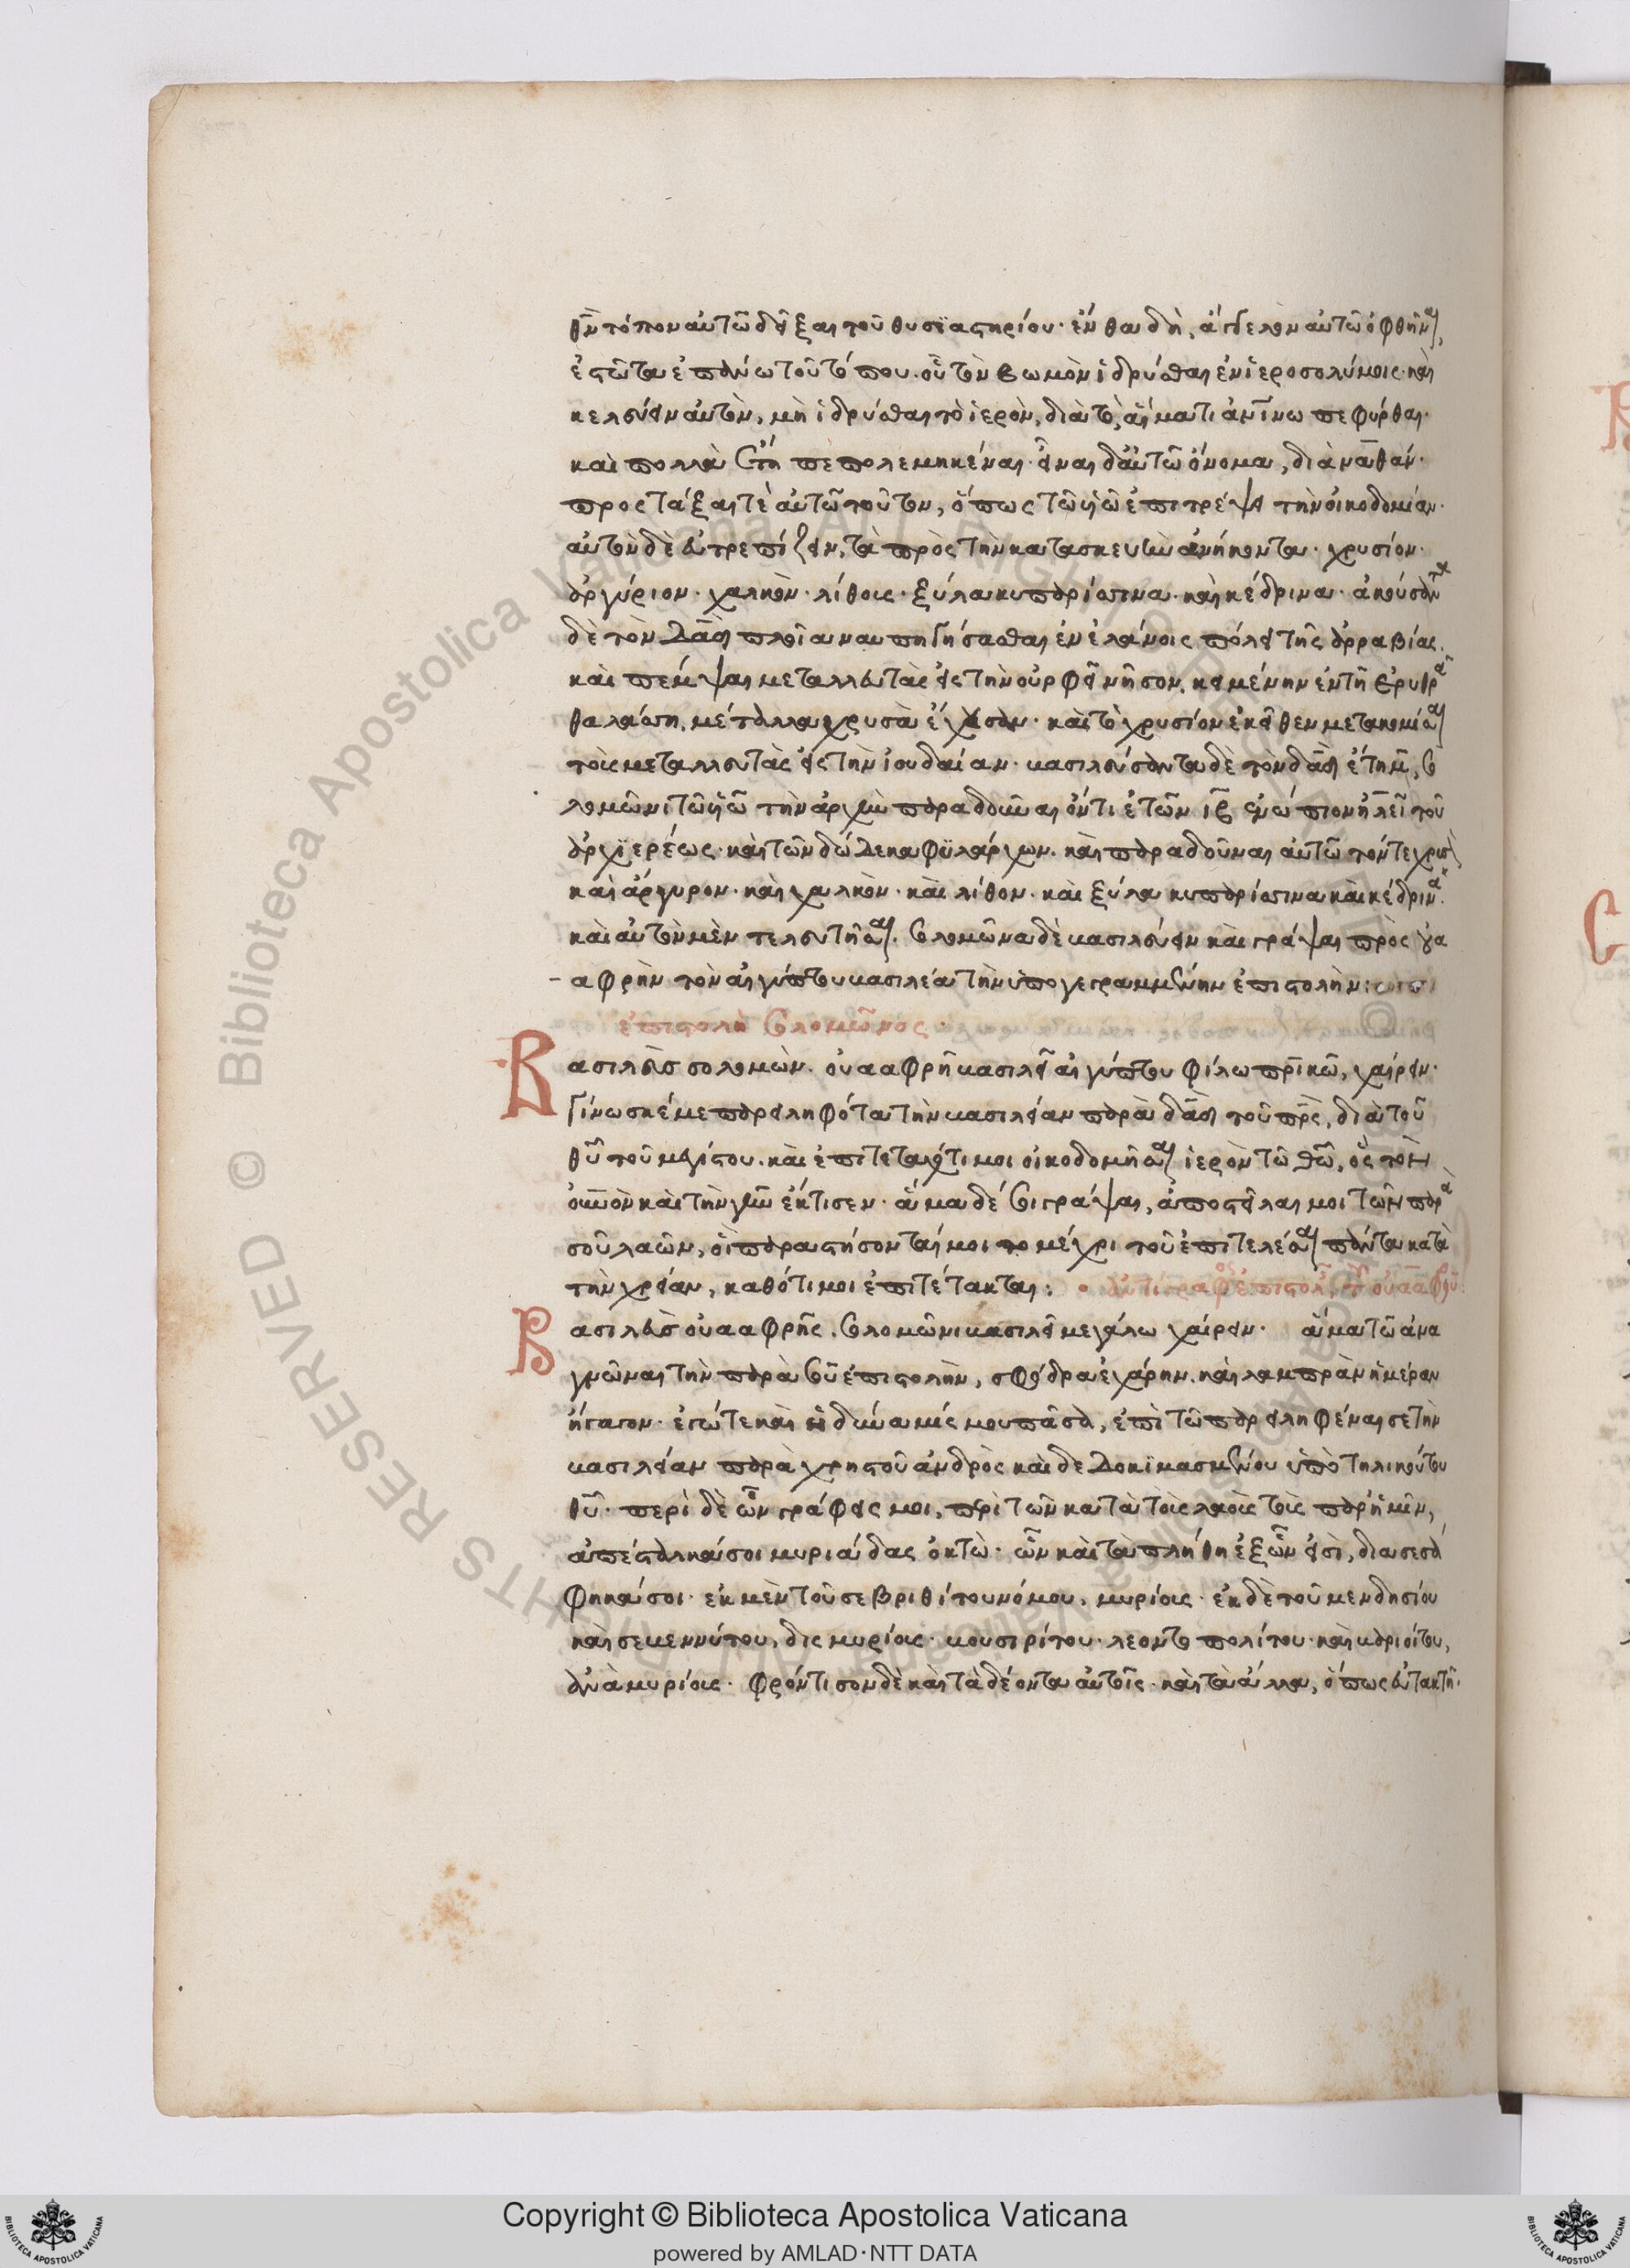 θν̅ τόπον αὐτῶ δεῖξαι τοῦ θυσϊαστηρίου· ἔνθα δὴ, ἄγγελον αὐτῶ ὀφθῆναι,
ἑστῶτα ἐπάνω τοῦ τόπου. οὗ τὸν βωμὸν ἱδρύσθαι ἐν ἱεροσολύμοις· καὶ
κελεύειν αὐτὸν, μὴ ἱδρύσθαι τὸ ἱερὸν, διὰ τὸ, αἵματι ἀνίνω πεφύρθαι·
καὶ πολλὰ ἔτη πεπολεμηκέναι· εἶναι δ' αὐτῶ ὄνομα, διὰ ναθάν·
προστάξαι τὲ αὐτῶ τοῦτον, ὅπως τῶ υἱῶ ἐπιτρέψει τὴν οἰκοδομίαν·
αὐτὸν δὲ εὐτρεπίζειν, τὰ πρὸς τὴν κατασκευὴν ἀνήκοντα· χρυσίον·
ἀργύριον· χαλκὸν· λίθοις· ξύλα κυπαρίσσινα· καὶ κέδρινα· ἀκούσαντα
δὲ τὸν δα̅δ πλοῖα ναυπηγήσασθαι ἐν ἐλάνοις πόλει τῆς ἀρραβίας.
καὶ πέμψαι μεταλλευτὰς εἰς τὴν οὐρφῆ νῆσον, κειμένην ἐν τῆ ἐρυθρᾶ
θαλάσση, μέταλλα χρυσὰ ἔχουσαν· καὶ τὸ χρυσίον ἐκεῖθεν μετακομίσαι
τοὺς μεταλλευτὰς εἰς τὴν ἰουδαίαν· βασιλεύσαντα δὲ τὸν δα̅δ ἔτη μ̅, σο
λομῶνι τῶ υἱῶ τὴν ἀρχὴν παραδοῦναι ὄντι ἐτῶν ιβ̅ ἐνώπιον ἠλεὶ τοῦ
ἀρχϊερέως· καὶ τῶν δώδεκα φϋλάρχων. καὶ παραδοῦναι αὐτῶ τόν τε χρυσὸν
καὶ ἄργυρον· καὶ χαλκὸν· καὶ λίθον· καὶ ξύλα κυπαρίσσινα καὶ κέδρινα·
καὶ αὐτὸν μὲν τελευτῆσαι. σολομῶνα δὲ βασιλεύειν καὶ γράψαι πρὸς οὐα
αφρὴν τὸν αἰγύπτου βασιλέα τὴν ὑπογεγραμμένην ἐπιστολήν:
ἐπιστολὴ σολομῶνος·
Βασιλεὺς σολομὼν. οὐααφρῆ βασιλεῖ αἰγύπτου φίλω πρ̅ικῶ, χαίρειν·
Γίνωσκέ με παρειληφότα τὴν βασιλείαν παρὰ δα̅δ τοῦ πρ̅ς, διὰ τοῦ
θυ̅ τοῦ μεγίστου. καὶ ἐπιτεταχότι μοι οἰκοδομῆσαι ἱερὸν τῶ θω̅, ὃς τὸν
οὐν̅ὸν καὶ τὴν γῆν ἔκτισεν· ἅμα δέ σοι γράψαι, ἀποστεῖλαι μοι τῶν παρὰ
σοῦ λαῶν, οἳ παραστήσονταί μοι το μέχρι τοῦ ἐπιτελέσαι πάντα κατὰ
τὴν χρείαν, καθότι μοι ἐπιτέτακται: · ἀντίγραφος ἐπιστολὴ τοῦ οὐααφρῆ
Βασιλεὺς οὐααφρῆς. σολομῶνι βασιλεῖ μεγάλω χαίρειν· ἅμα τῶ ἀνα
γνῶναι τὴν παρὰ σοῦ ἐπιστολὴν, σφόδρα ἐχάρην. καὶ λαμπρὰν ἡμέραν
ἤγαγον· ἐγώ τε καὶ ἡ δύναμίς μου πᾶσα, ἐπὶ τῶ παρειληφέναι σε τὴν
βασιλείαν παρὰ χρηστοῦ ἀνδρὸς καὶ δεδοκϊμασμένου ὑπὸ τηλικούτου
θυ̅· περὶ δὲ ὧν γράφεις μοι, πρὶ τῶν κατὰ τοὺς λαοὺς τοὺς παρ' ἡμῖν,
ἀπέσταλκά σοι μυριάδας ὀκτὼ· ὧν καὶ τὰ πλήθη ἐξ ὧν εἰσὶ, διασεσά
φηκά σοι· ἐκ μὲν τοῦ σεβριθίτου νόμου, μυρίους· ἐκ δὲ τοῦ μενδησίου
καὶ σεβεννύτου, δις μυρίους· βουσιρίτου· λεοντοπολίτου· καὶ ἀθριοίτου,
ἀνὰ μυρίους· φρόντισον δὲ καὶ τὰ δέοντα αὐτοῖς· καὶ τὰ ἄλλα, ὅπως εὐτακτῆ·